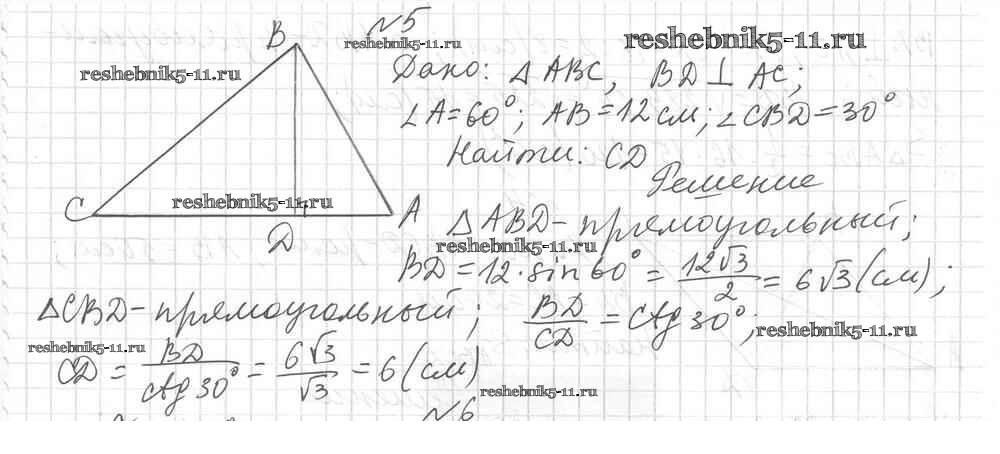 №5
reshebnik5-11.ru
reshebnik5-11.ru
B
reshebnik5-11.ru
Дано: △ ABC, BD ⊥ AC;
∠A=60°; AB=12 см; ∠CBD=30°
Найти: CD
Решение
reshebnik5-11.ru
C
A
D
△ABD- прямоугольный;
reshebnik5-11.ru
BD = 12·sin60° = 12√3/2 = 6√3 (см);
△CBD- прямоугольный; BD/CD = ctg 30°;
reshebnik5-11.ru
reshebnik5-11.ru
CD = BD/ctg 30° = 6√3/√3 = 6 (см)
reshebnik5-11.ru
№6